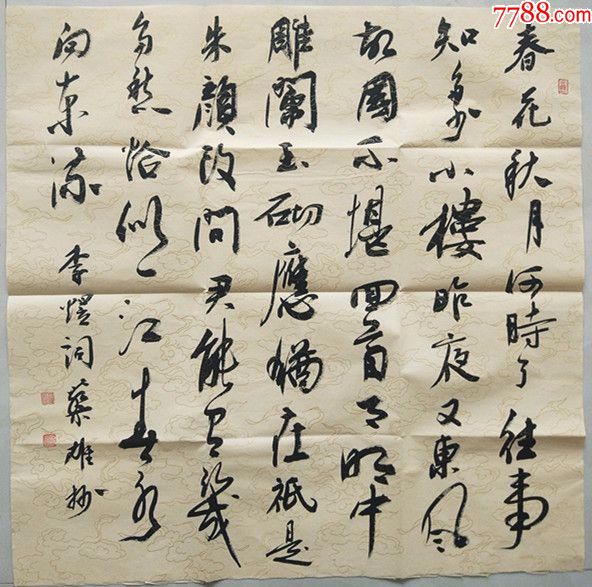 7788.com
春花秋月何時了往事
知多少小樓昨夜又東風
故國不堪回首月明中
雕闌玉砌應猶在祇是
朱顏改問君能有幾
多愁恰似一江春水
向東流 李煜詞 蔡雄抄